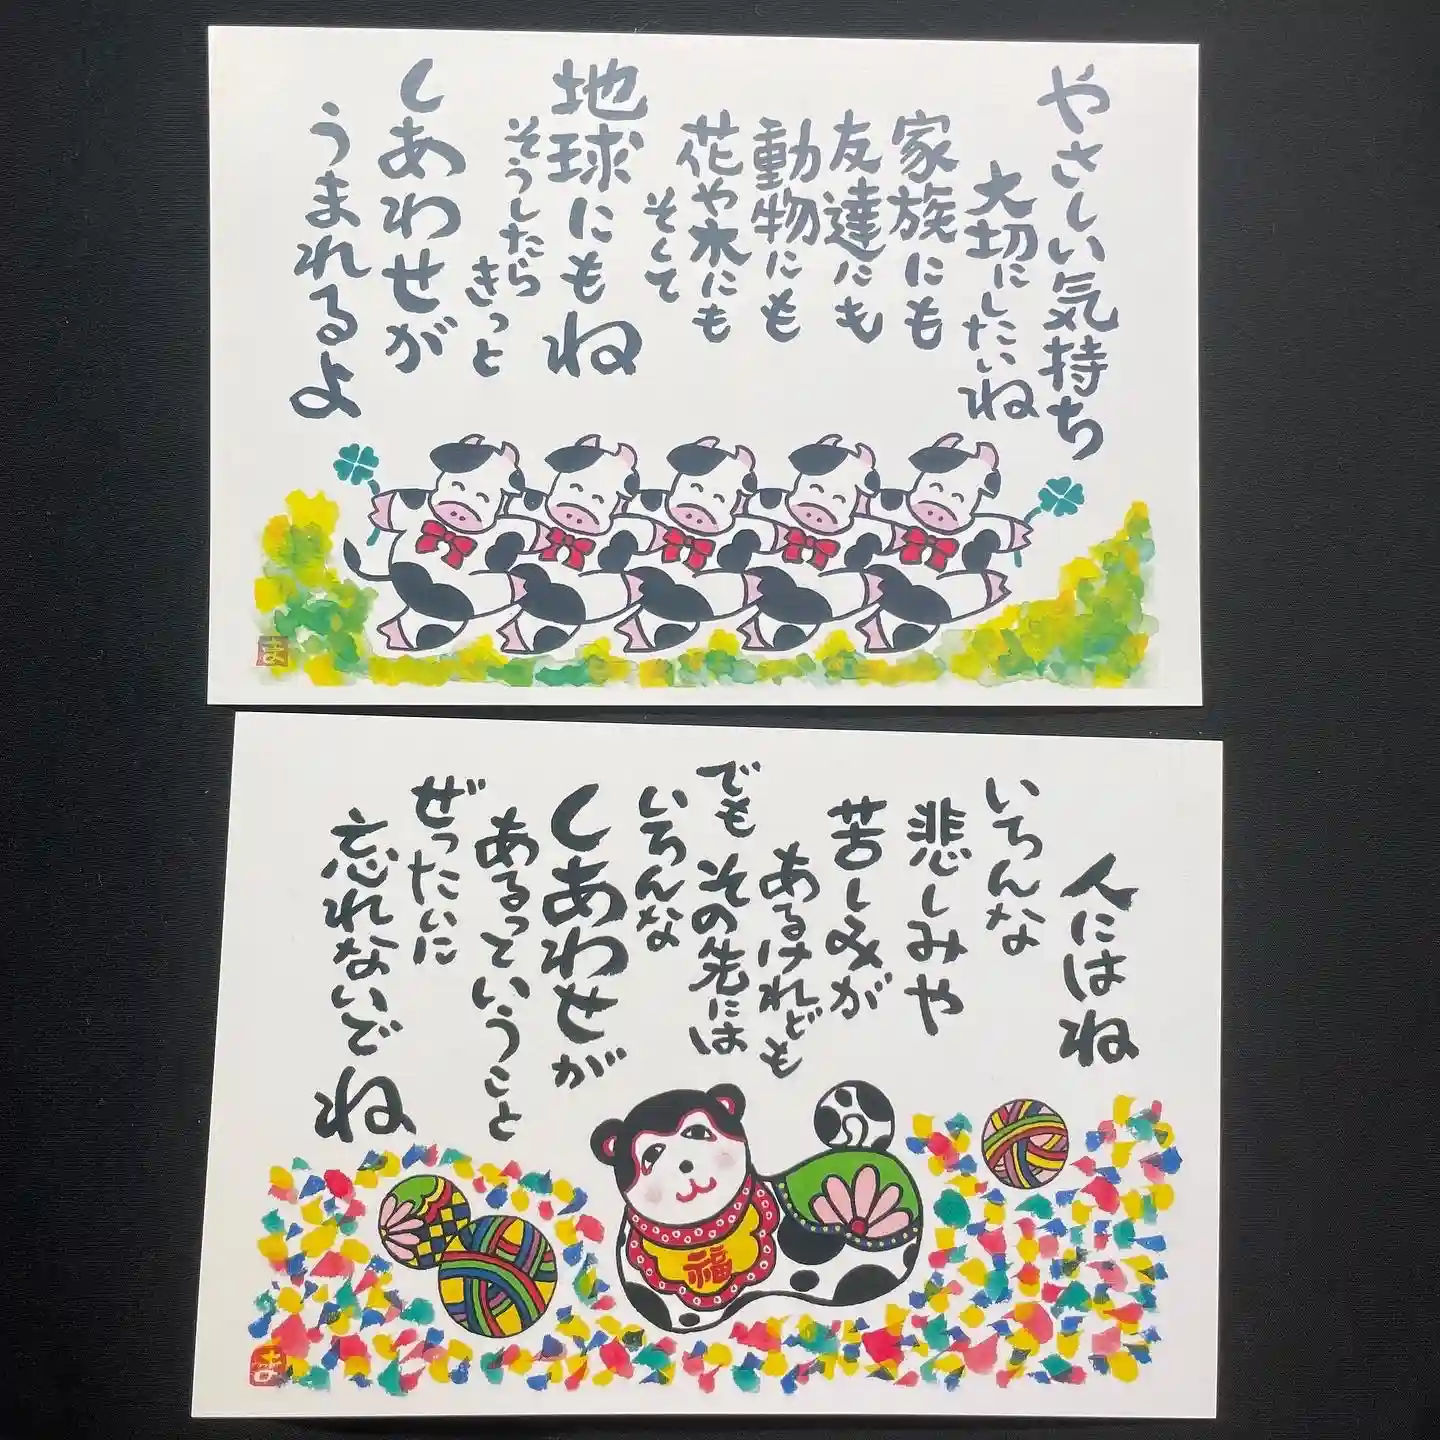 やさしい気持ち
大切にしたいね
家族にも
友達にも
動物にも
花や水にも
そして
地球にもね
そうしたら
きっと
しあわせが
うまれるよ
ま
人にはね
いろんな
悲しみや
苦しみが
あるけれども
でも その先には
いろんな
しあわせが
あるっていうこと
ぜったいに
忘れないでね
福
ま